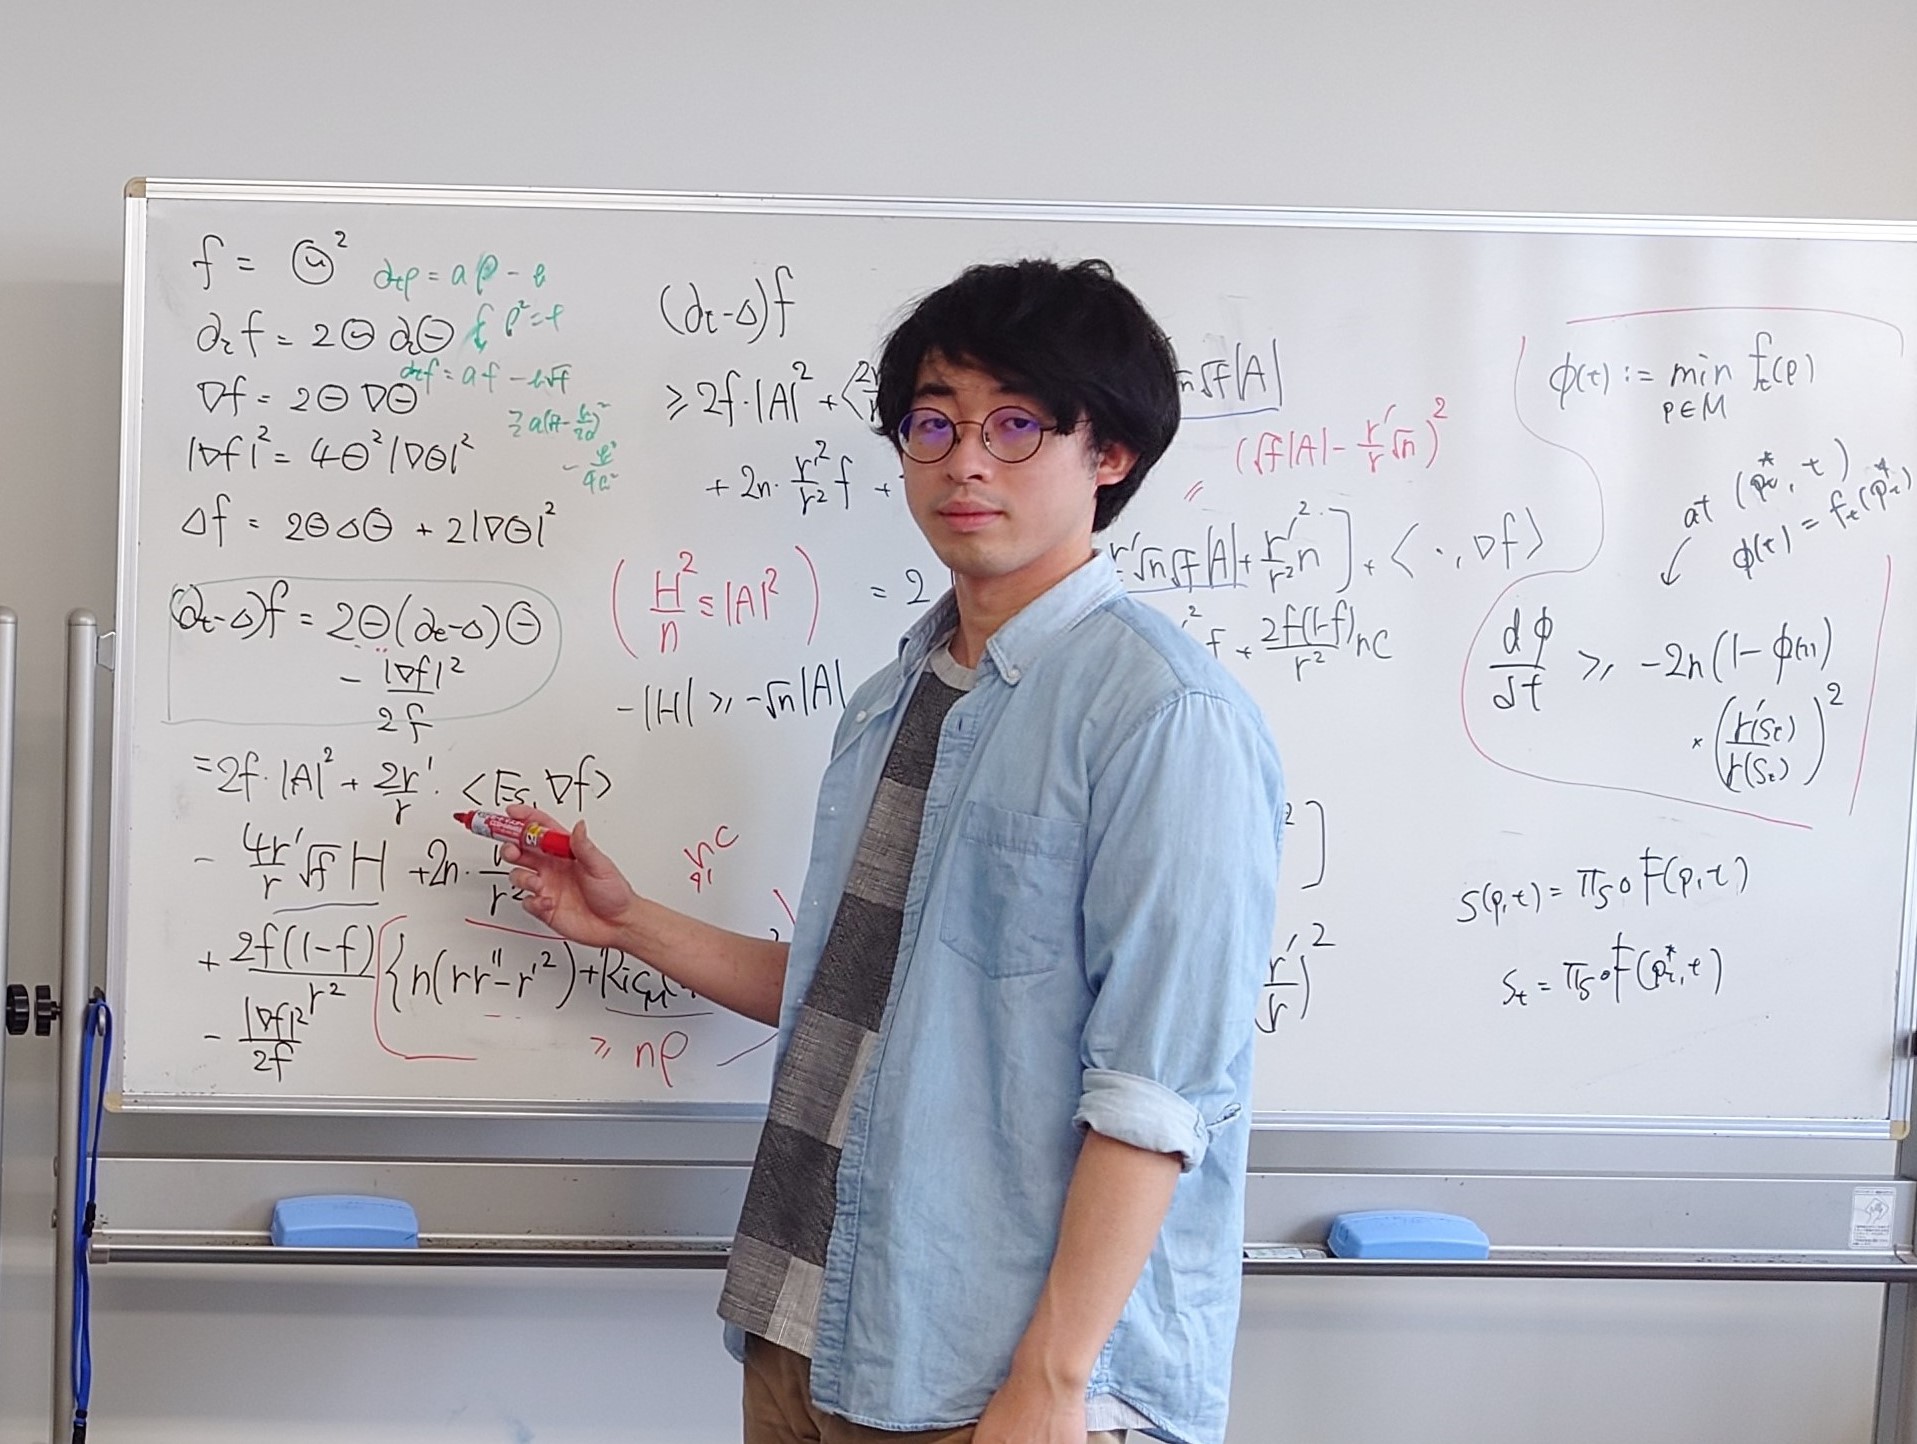 f = Θ²
∂tρ = aρ - b
∂t f = 2Θ ∂tΘ
ρ² = f
∂t f = af - b√f
∇f = 2Θ∇Θ
|∇f|² = 4Θ²|∇Θ|²
Δf = 2ΘΔΘ + 2|∇Θ|²
(∂t-Δ)f = 2Θ(∂t-Δ)Θ
- |∇f|²/2f
= 2f·|A|² + 2r'/r · <Es, ∇f>
- 4r'/r √f H + 2n·
+ 2f(1-f)/r² {n(rr''-r'²)+Ric
- |∇f|²/2f
≥ nρ
(∂t-Δ)f
≥ 2f·|A|² +
+ 2n· r'²/r² f +
(H²/n ≤ |A|²)
= 2
-|H| ≥ -√n|A|
√f|A|
(√f|A| - r'/r √n)²
r'√n√f|A| + r'²/r² n] + < · , ∇f>
f + 2f(1-f)/r² nC
²]
r'/r)²
φ(t) := min f_t(p)
p∈M
at (p*t, t)
φ(t) = f_t(p*t)
dφ/dt ≥ -2n(1-φ(t))
× (r'(St)/r(St))²
S(p,t) = πs∘F(p,t)
St = πs∘F(p*t,t)